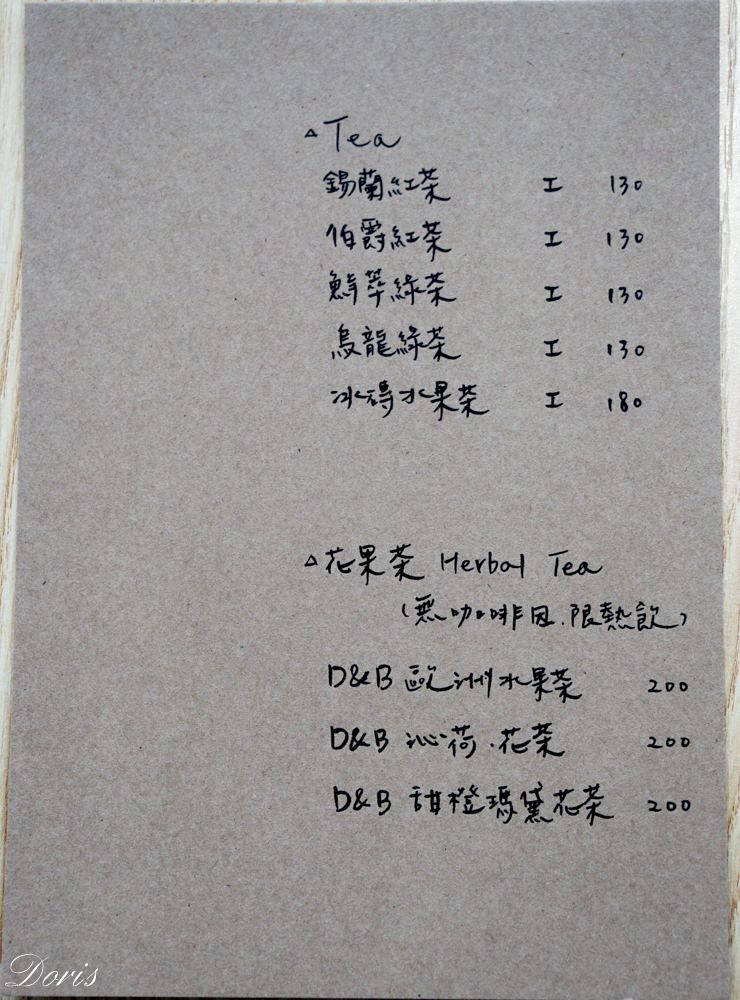 △ Tea
錫蘭紅茶 I 130
伯爵紅茶 I 130
鮮萃綠茶 I 130
烏龍綠茶 I 130
冰磚水果茶 I 180
△ 花果茶 Herbal Tea
(無咖啡因.限熱飲)
D&B 歐洲水果茶 200
D&B 沁荷.花茶 200
D&B 甜橙瑪黛花茶 200
Doris